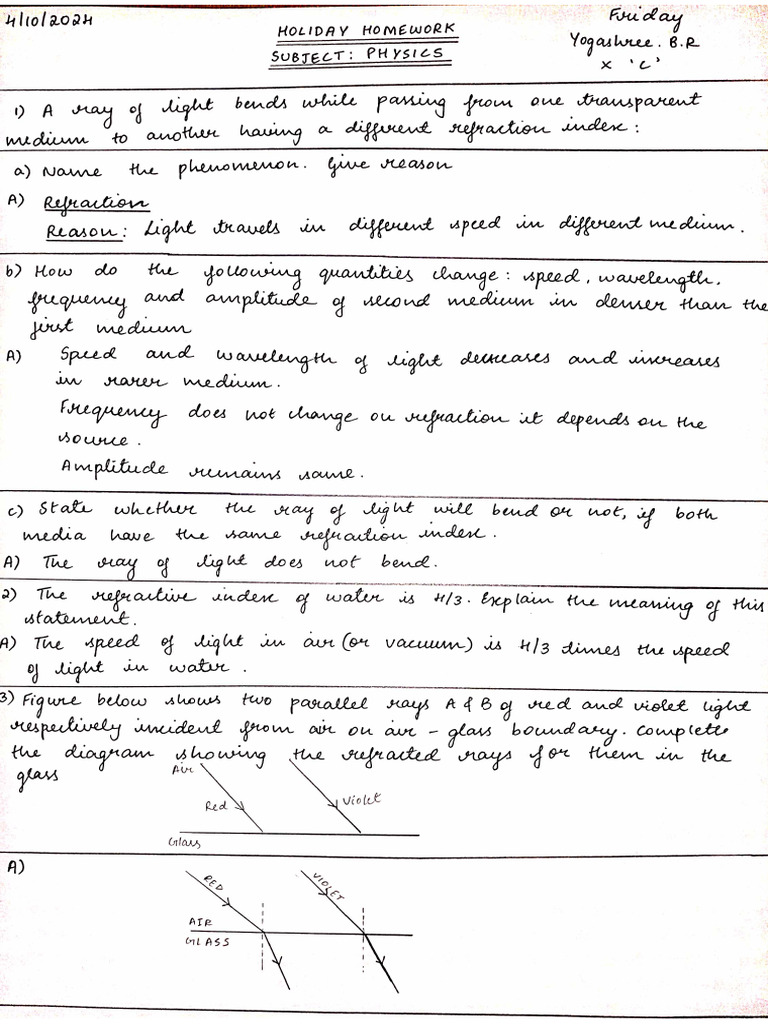 4/10/2024
HOLIDAY HOMEWORK
SUBJECT: PHYSICS
Friday
Yogashree. B.R
X 'C'
1) A ray of light bends while passing from one transparent
medium to another having a different refraction index:
a) Name the phenomenon. Give reason
A) Refraction
Reason: Light travels in different speed in different medium.
b) How do the following quantities change: speed, wavelength,
frequency and amplitude of second medium in denser than the
first medium
A) Speed and wavelength of light decreases and increases
in rarer medium.
Frequency does not change on refraction it depends on the
source.
Amplitude remains same.
c) State whether the ray of light will bend or not, if both
media have the same refraction index.
A) The ray of light does not bend.
2) The refractive index of water is 4/3. Explain the meaning of this
statement.
A) The speed of light in air (or vacuum) is 4/3 times the speed
of light in water.
3) Figure below shows two parallel rays A & B of red and violet light
respectively incident from air on air - glass boundary. Complete
the diagram showing the refracted rays for them in the
glass
Air
Red
Violet
Glass
A)
RED
VIOLET
AIR
GLASS